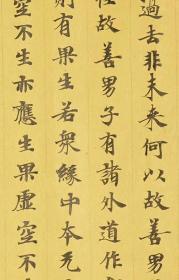 過去非未来何以故善男
性故善男子有諸外道作
則有果生若衆緣中本无
空不生亦應生果虛空不